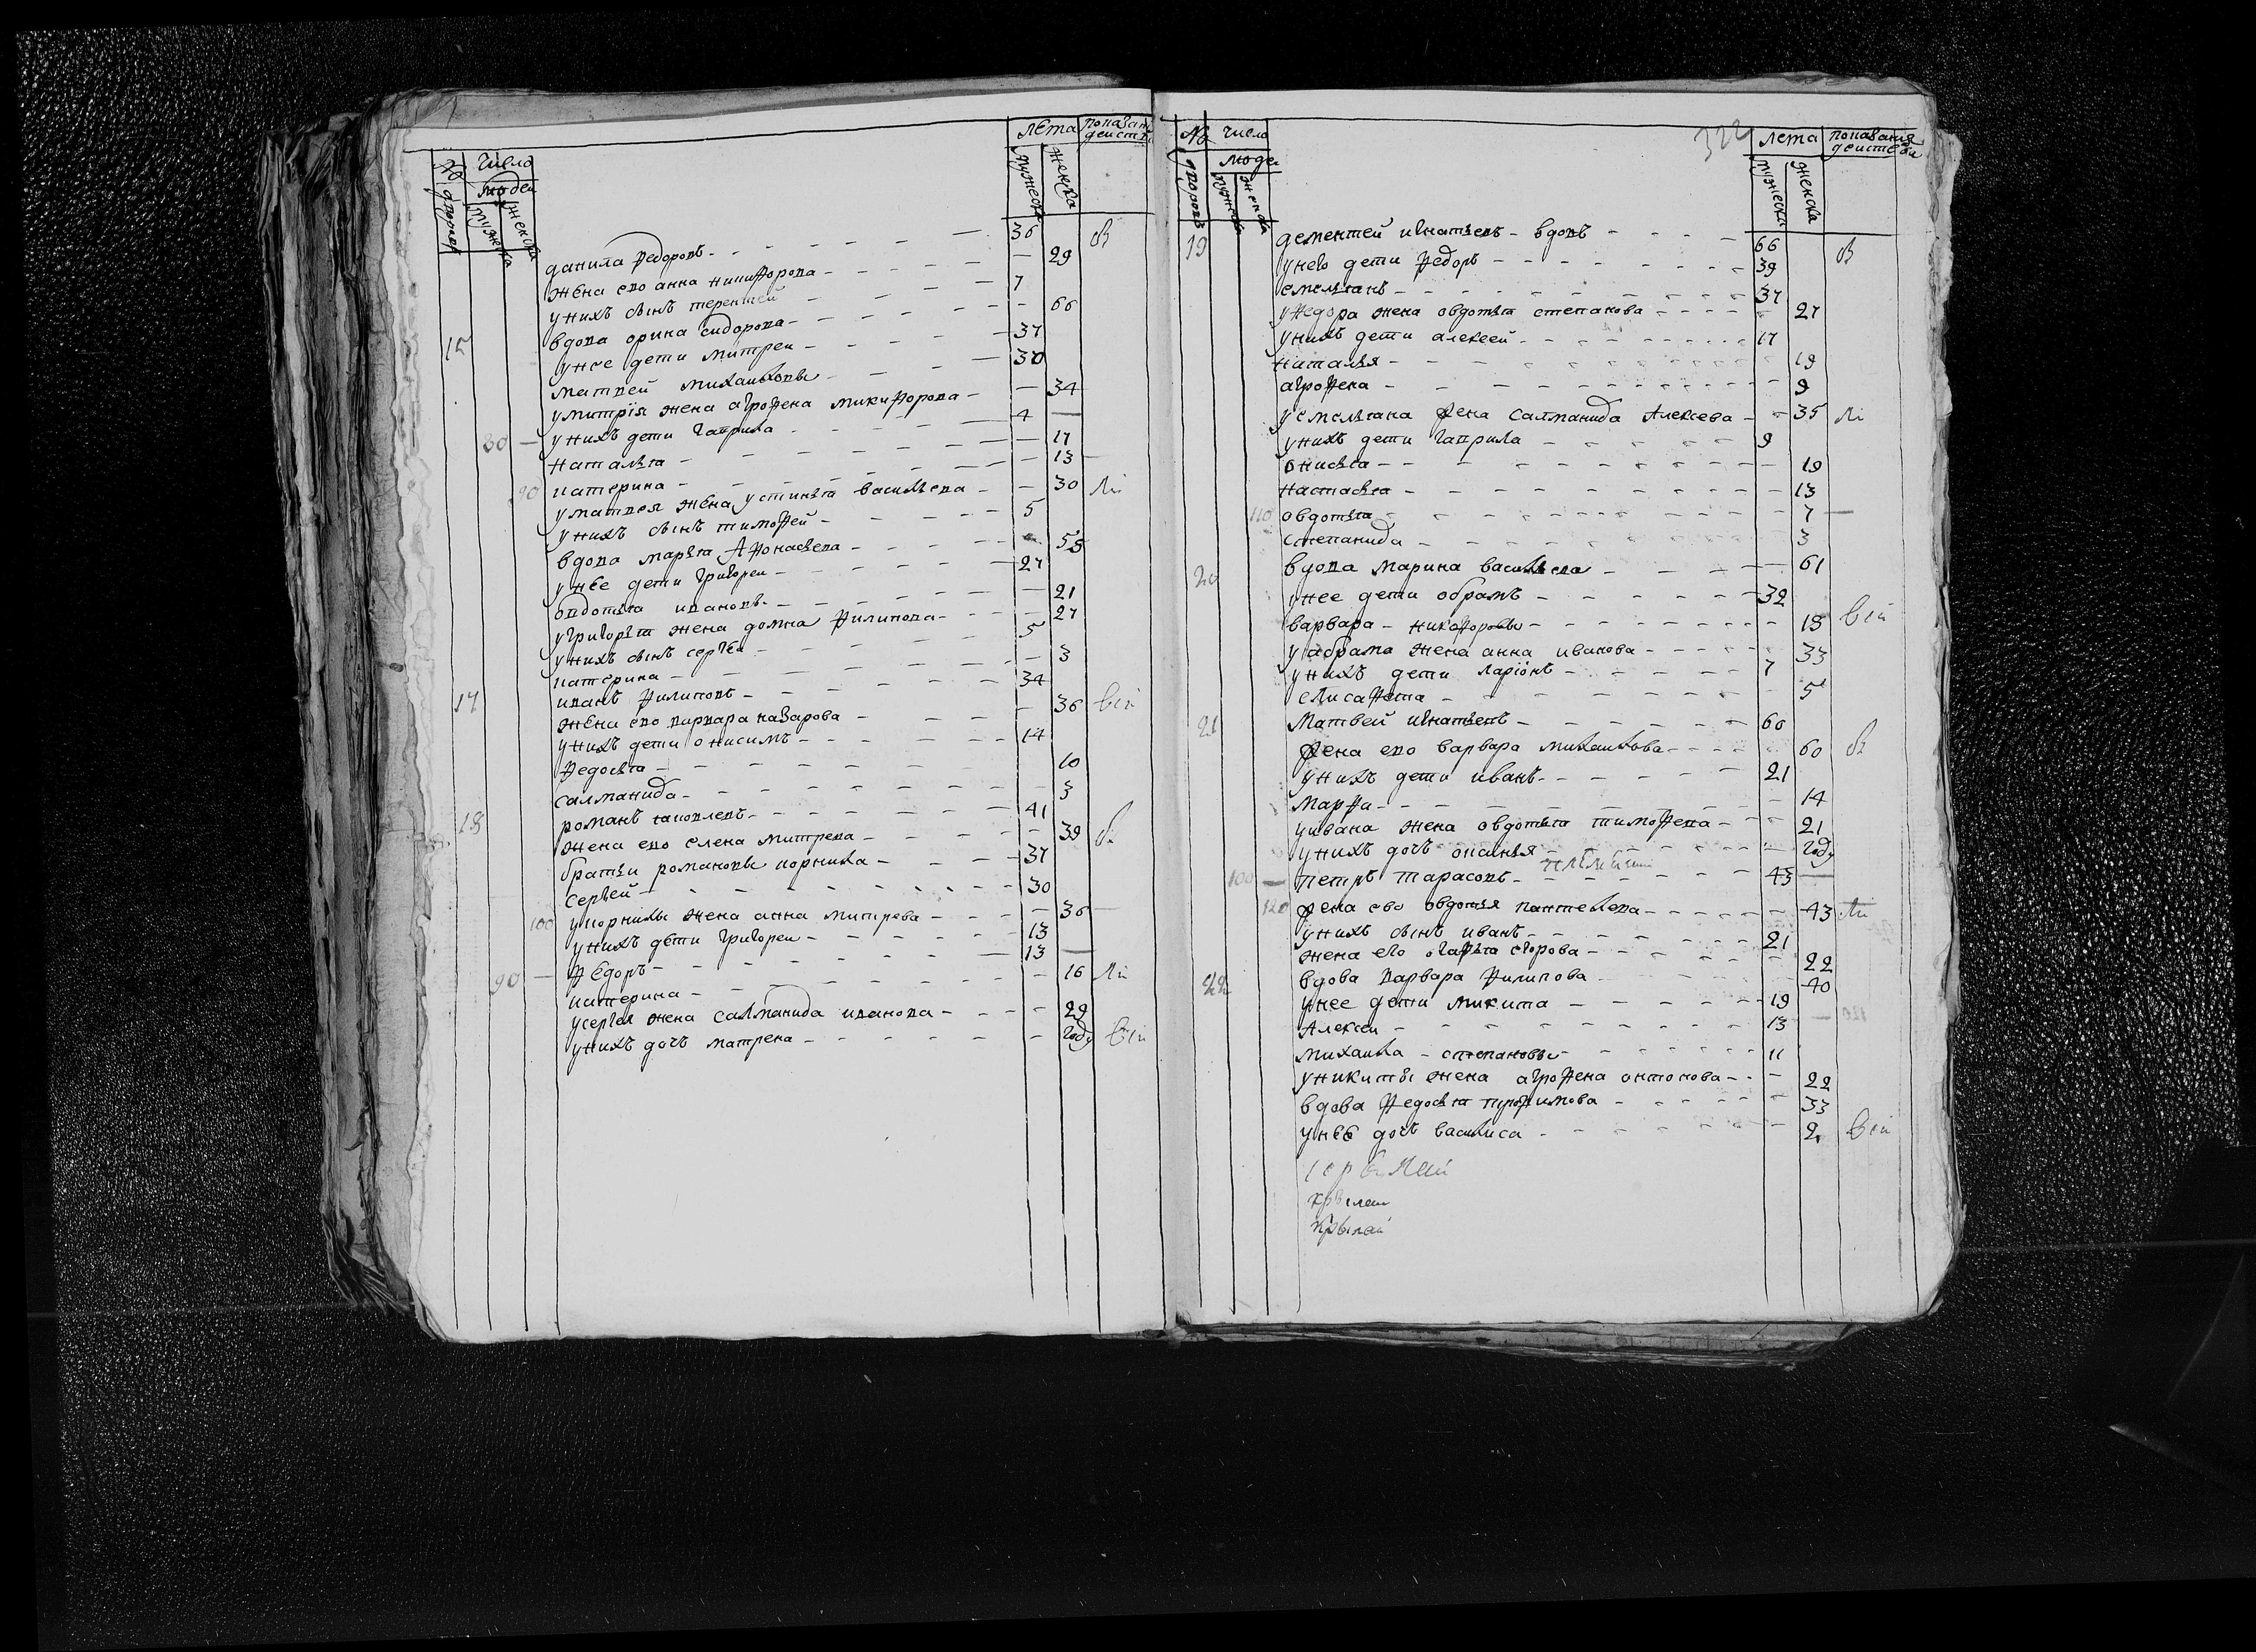 № число лета показан
дворовъ людеи мужеска женска деиств
мужеска женска
данила федоровъ - 36
жена ево анна никифорова - 29
у нихъ сынъ терентеи - 7
вдова орина сидорова - 66
15 у нее дети митреи - 37
матвеи михаиловы - 30
у митрія жена агрофена микифорова - 34
80 у нихъ дети гаврила - 4
наталья - 17
катерина - 13
90 у матвея жена устинья васильева - 30
у нихъ сынъ тимофеи - 5
вдова марья афонасьева - 58
у нее дети григореи - 27
овдотья ивановы - 21
у григорья жена домна филипова - 27
у нихъ сынъ сергеи - 5
катерина - 3
17 иванъ филиповъ - 34
жена ево варвара назарова - 36
у нихъ дети онисимъ - 14
федосья - 10
салманида - 3
18 романъ яковлевъ - 41
жена ево елена митрева - 39
братьи романовы корнила - 37
сергеи - 30
100 у корнилы жена анна митрева - 36
у нихъ дети григореи - 13
90 федоръ - 13
катерина - 16
у сергея жена салманида иванова - 29
у нихъ дочь матрена - году
322
№ число лета показания
дворовъ людеи мужеска женска деистви
мужеска женска
19 дементеи игнатьевъ - вдовъ - 66
у него дети федоръ - 39
емельянъ - 37
у федора жена овдотья степанова - 27
у нихъ дети алексеи - 17
наталья - 19
агрофена - 9
у емельяна жена салманида алексева - 35
у нихъ дети гаврила - 9
онисья - 19
настасья - 13
110 овдотья - 7
степанида - 3
20 вдова марина васильева - 61
у нее дети обрамъ - 32
варвара - никофоровы - 18
у абрама жена анна иванова - 33
у нихъ дети ларіонъ - 7
елисафета - 5
21 матвеи игнатьевъ - 60
жена ево варвара михаилова - 60
у нихъ дети иванъ - 21
марфа - 14
у ивана жена овдотья тимофева - 21
у нихъ дочь оксинья - году
100 петръ тарасовъ - 43
120 жена ево овдотья пантелева - 43
у нихъ сынъ иванъ - 21
жена его огафья егорова - 22
22 вдова варвара филипова - 40
у нее дети микита - 19
алексеи - 13
михаила - степановы - 11
у никиты жена агрофена онтонова - 22
вдова федосья трофимова - 33
у нее дочь василиса - 2